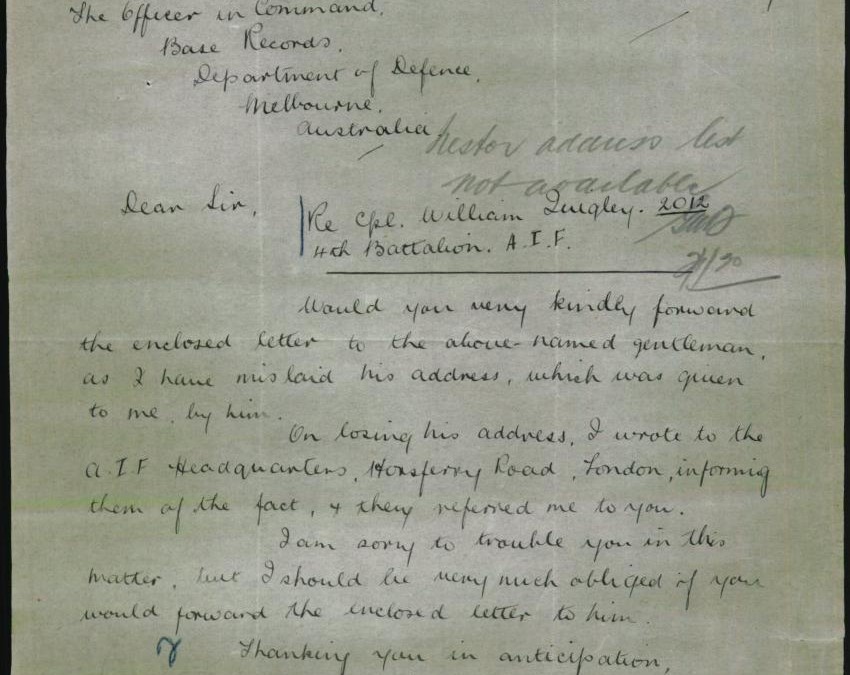 The Officer in Command,
Base Records.
Department of Defence,
Melbourne.
Australia.
address list
not available
Dear Sir,
Re Cpl. William Quigley. 2012
4th Battalion. A.I.F.
Would you very kindly forward
the enclosed letter to the above-named gentleman,
as I have mislaid his address, which was given
to me, by him.
On losing his address, I wrote to the
A.I.F Headquarters, Horsferry Road, London, informing
them of the fact, & they referred me to you.
I am sorry to trouble you in this
matter, but I should be very much obliged if you
would forward the enclosed letter to him.
Thanking you in anticipation,